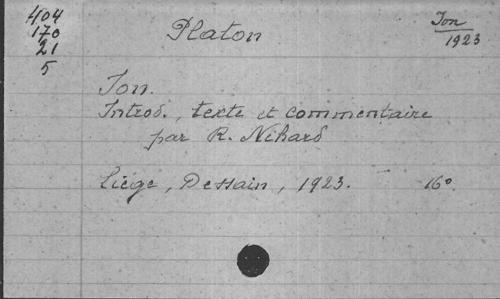 404
170
21
5
Platon
Ion
1923
Ion.
Introd., texte et commentaire
par R. Nihard
Liége, Dessain, 1923. 16°